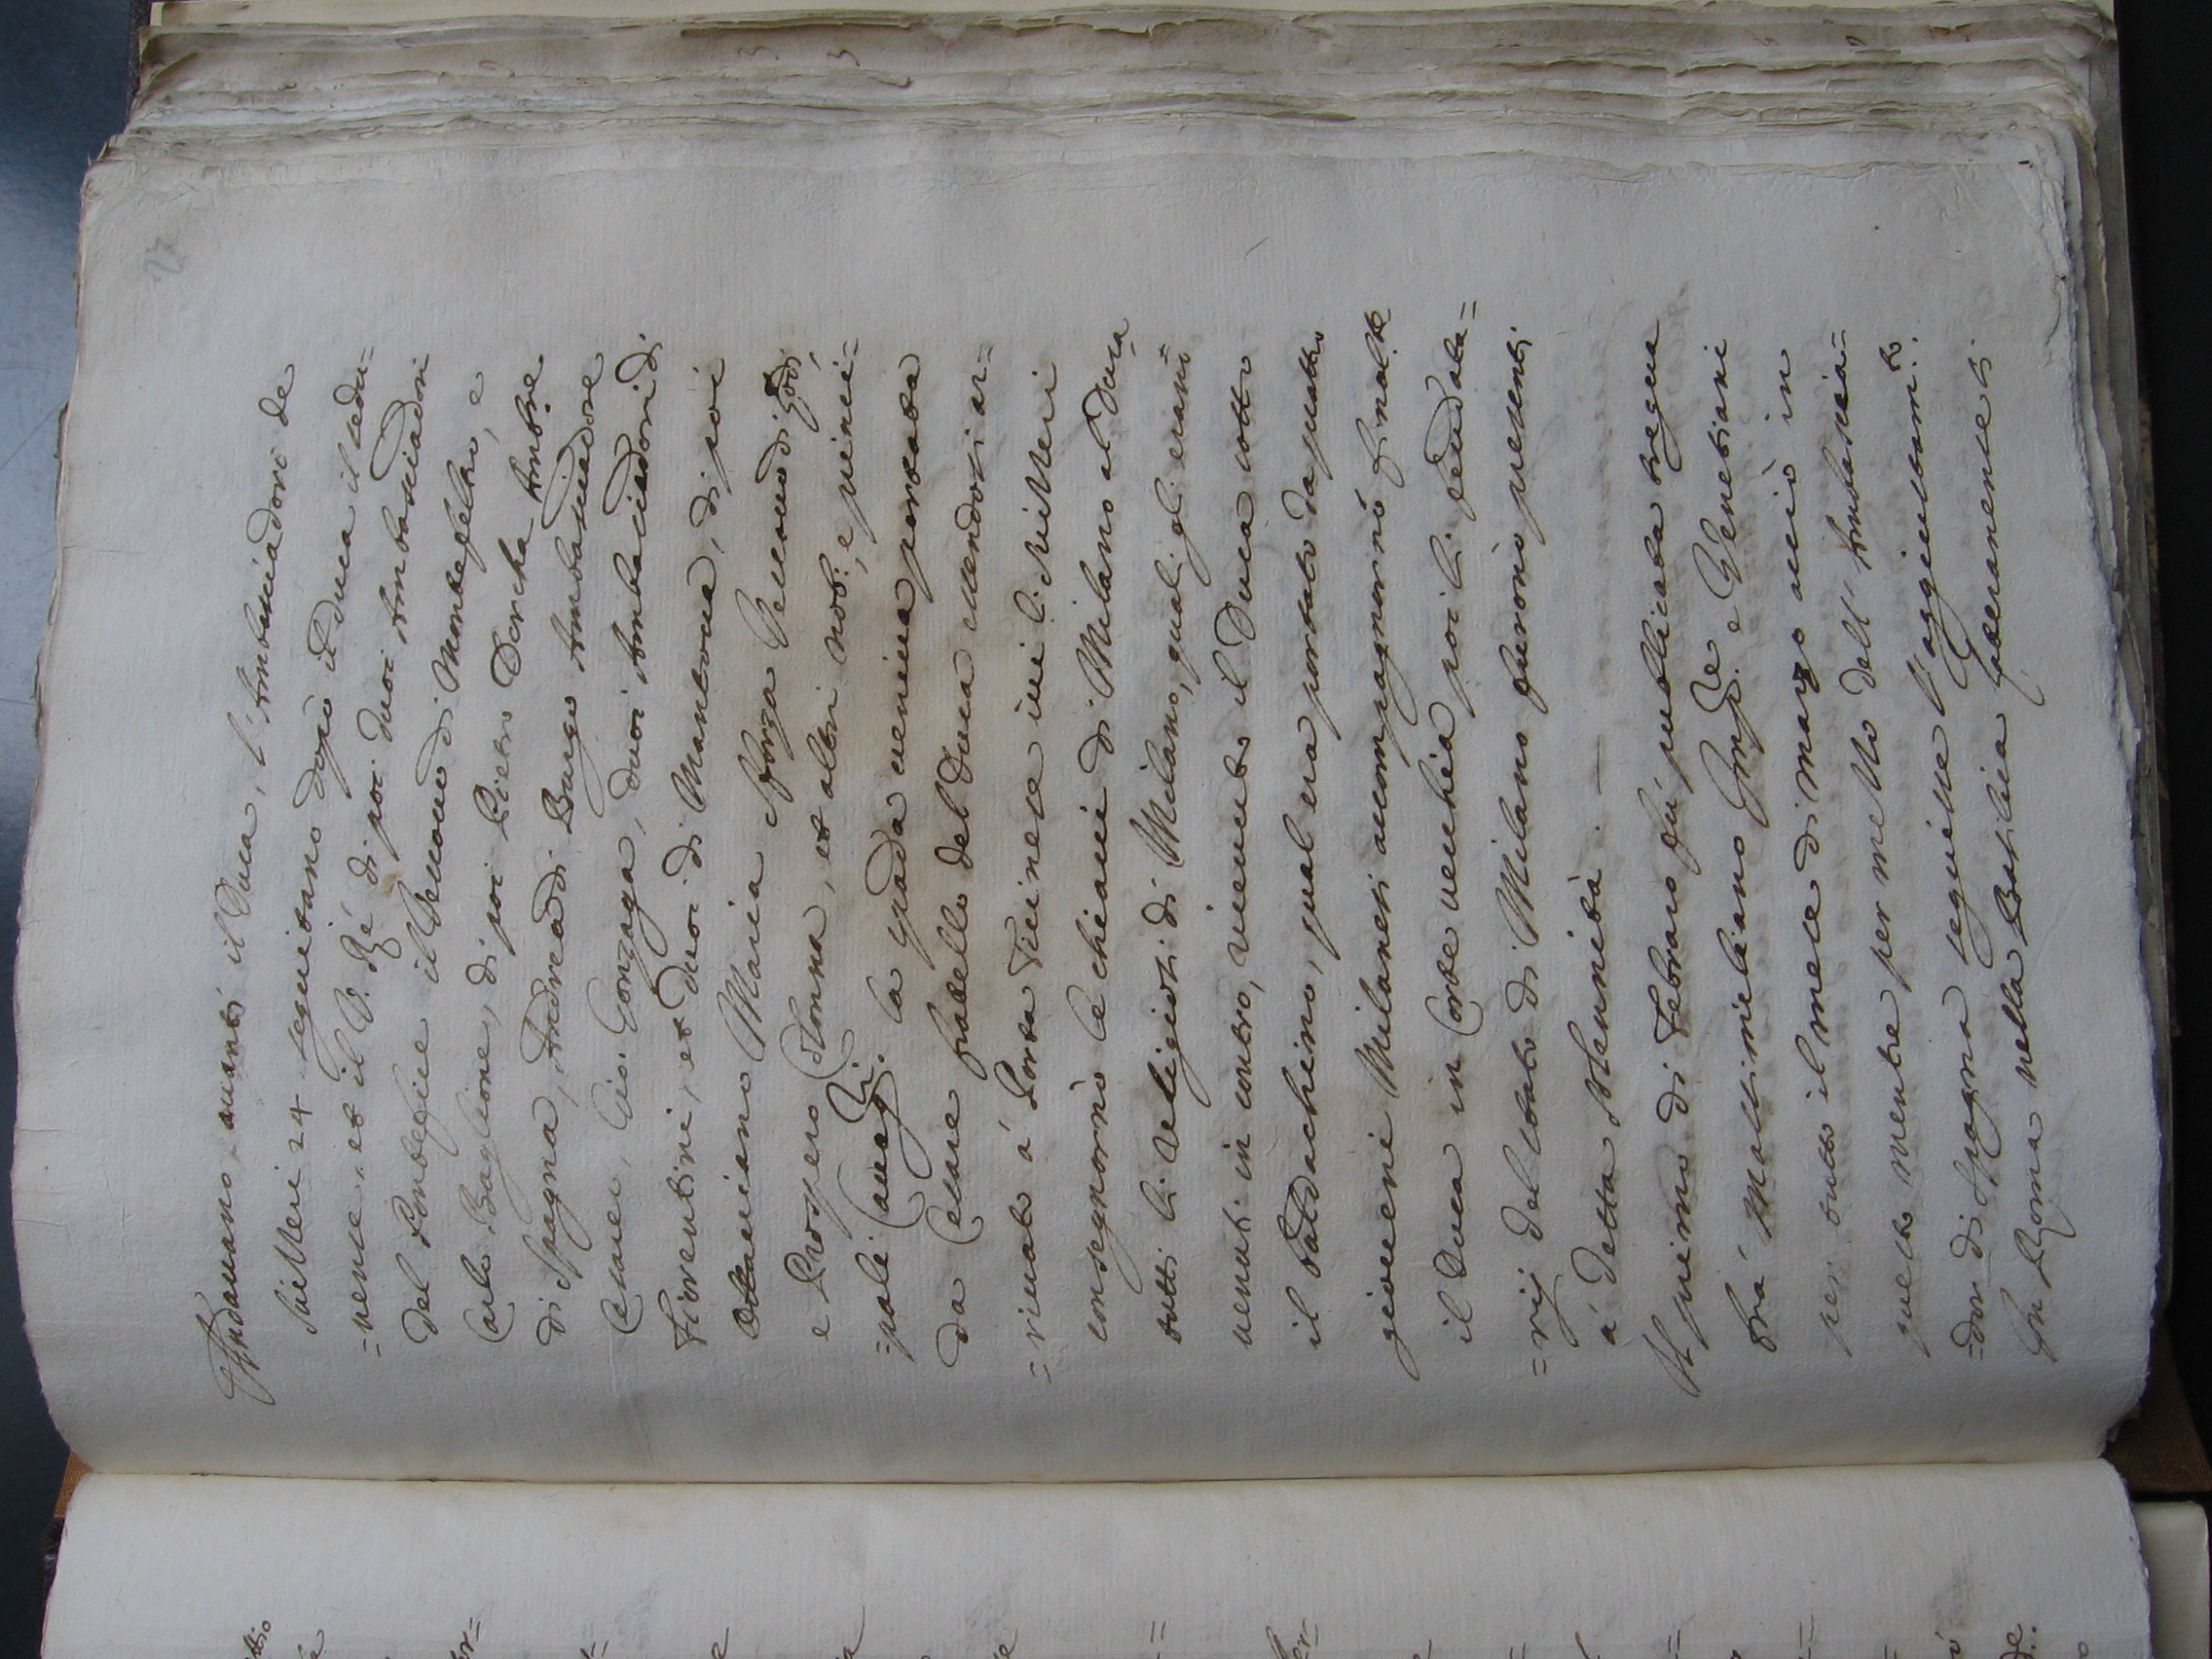 27
Andavano avanti il Duca, l'Ambasciadori de
Suizzeri 24 seguitano dopò il Duca il sedu=
=nense, et il V. Rè di poi duoi Ambasciadori
del Pontefice il Vescovo di Montefeltro, e
Carlo Baglione, di poi Pietro Dorcha Ambre
di Spagna, Andrea di Burgo Ambasciadore
Cesareo, Gio: Gonzaga, duoi Ambaciadori di
Fiorentini, et duoi di Mantova, di poi
Ottaviano Maria Sforza Vescovo di Lodi,
e Prospero Colonna, et altri nob:, e princi=
=pali Cavagli. la spada veniva portata
da Cesare fratello del Duca essendosi ar=
=rivato à Porta Ticinese ivi li Suizzeri
consegnorno le chiavi di Milano al Duca
tutti li religiosi di Milano, quali gli erano
venuti in contro, vicevuto il Duca sotto
il baldachino, qual era portato da quattro
gioveni Milanesi accompagnorno finalte
il Duca in Corte vecchia poi li feudata=
=rij del stato di Milano furono presenti
à detta solennità. —
Il primo di Febraro fù publicata tregua
frà Massimiliano Impre. e Venetiani
per tutto il mese di marzo acciò in
questo mentre per mezzo dell'Ambascia=
=dor di Spagna seguisse l'aggiustamto.
In Roma nella Basilica Lateranense si